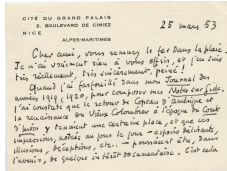 CITÉ DU GRAND PALAIS
2, BOULEVARD DE CIMIEZ
NICE
ALPES-MARITIMES
25 mars 53
Cher ami, vous remuez le fer dans la plaie.
Je n'ai vraiment rien à vous offrir, et j'en suis
très réellement, très sincèrement, peiné !
Quand j'ai farfouillé dans mon Journal des
années 1919, 1920, pour composer mes Notes sur Gide,
j'ai constaté que le retour de Copeau d'Amérique et
la renaissance du Vieux Colombier à l'époque du
y tenaient une certaine place, et que ces
impressions, notées au jour le jour – espoirs délirants,
illusions, déceptions, etc. – pourraient être, dans
l'avenir, de quelque intérêt documentaire. C'est cela